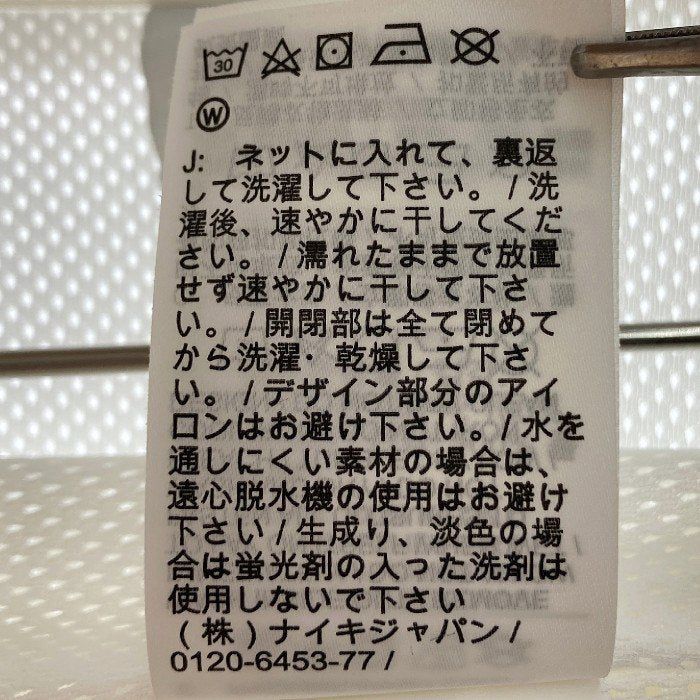 30
W
J: ネットに入れて、裏返
して洗濯して下さい。/洗
濯後、速やかに干してくだ
さい。/濡れたままで放置
せず速やかに干して下さ
い。/開閉部は全て閉めて
から洗濯・乾燥して下さ
い。/デザイン部分のアイ
ロンはお避け下さい。/水を
通しにくい素材の場合は、
遠心脱水機の使用はお避け
下さい/生成り、淡色の場
合は蛍光剤の入った洗剤は
使用しないで下さい
(株)ナイキジャパン/
0120-6453-77/